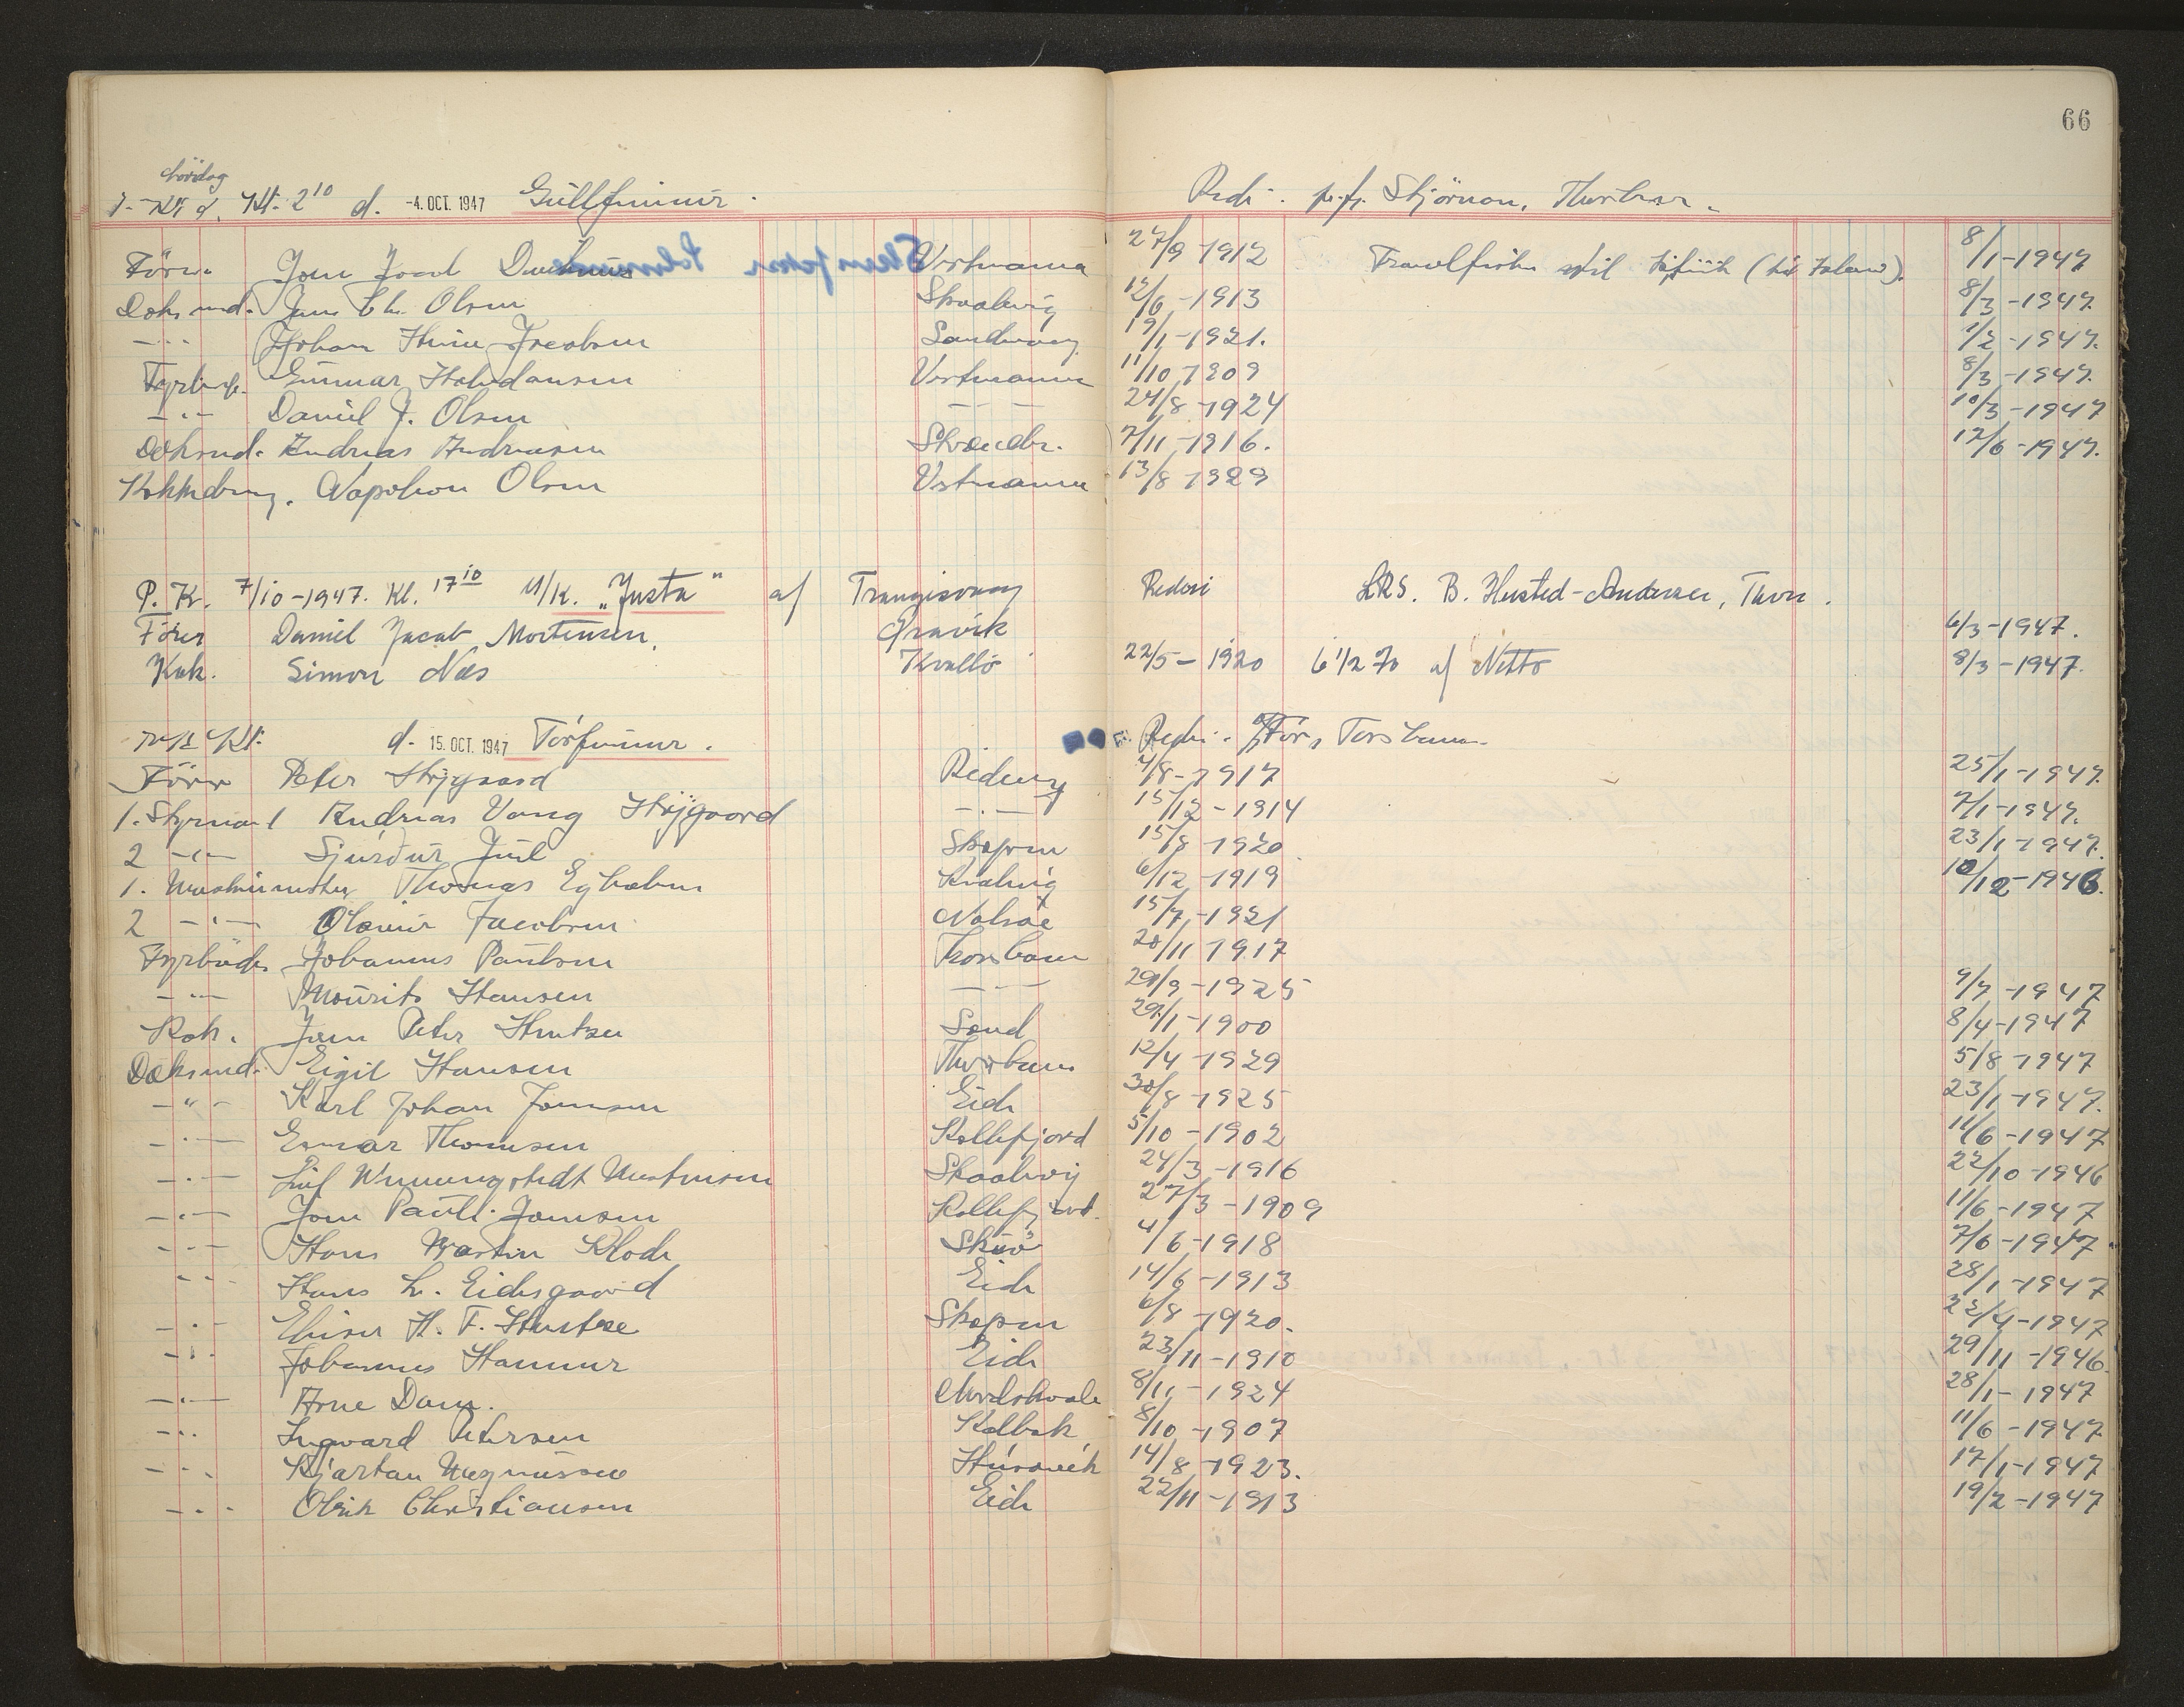 66
Lördag
Kl. 2 10 d. -4. OCT. 1947 Gullfinnur. Rederi: p.f. Stjörnan,
Förer Vestmanna 27/9 1912 8/1-1947
Dæksmd. Jens Chr. Olsen Skaalevig 12/6-1913 8/3-1947.
-"- Johan Jacobsen Sandvaag 19/1-1921. 1/2-1947.
Fyrbø. Gunnar Halvdansen Vestmanna 11/10 1909 8/3-1947.
-"- Daniel J. Olsen - - - 24/8-1924 10/3-1947
Dæksmd. Andreas Andreasen 7/11-1916. 12/6-1947.
Napoleon Olsen Vestmanna 13/8 1929
P. K. 7/10-1947. Kl. 17 10 M/K. "Justa" af Trangisvaag Rederi LRS. B. Husted-Andersen, Thors.
Fører Daniel Jacob Mortensen, 6/3-1947.
Kok. Simon Næs Kvalbø 22/5-1920 6 1/2 % af Netto 8/3-1947.
Kl. d. 15. OCT. 1947 Tórfinnur. Rederi:
Förer Peter Højgaard 4/8-1917 25/1-1947.
1. Styrmand Andreas Vang Højgaard -"- 15/12-1914 7/1-1947.
2 -"- Sjúrður Juul Skopen 15/8 1920 23/1-1947.
1. Maskinmester Thomas Egholm Kvalvig 6/12-1919 10/12-1946.
2 -"- Jacobsen Nolsøe 15/7-1921
Fyrböder Johannes Poulsen Thorshavn 20/11 1917
-"- Mourits Hansen - - - 29/9-1925 9/7-1947
Kok. Jens Peter Hentze Sand 29/1-1900 8/4-1947
Dæksmd. Eigil Hansen Thorshavn 12/4 1929 5/8 1947
-"- Karl Johan Joensen Eide 30/8 1925 23/1-1947.
-"- Esmar Thomsen Kollefjord 5/10-1902 11/6-1947
-"- Leif Wenningstedt Mortensen Skaalevig 24/3-1916 22/10-1946
-"- Jens Pauli Joensen Kollefjord. 27/3-1909 11/6-1947
-"- Hans Martin Klode Skuø 4/6-1918 7/6-1947
-"- Hans L. Eidesgaard Eide 14/6-1913 28/1-1947
-"- H. F. Hentze Skopen 6/8 1920. 22/4-1947
-"- Johannes Hammer Eide 23/11-1910 29/11-1946
-"- Arne Dam. Nordskaale 8/11-1924 28/1-1947
-"- Ingvard Petersen Kalbak 8/10-1907 11/6-1947
-"- Kjartan Magnussen Húsavík 14/8 1923. 17/1-1947
-"- Olrik Christiansen Eide 22/11-1913 19/2-1947